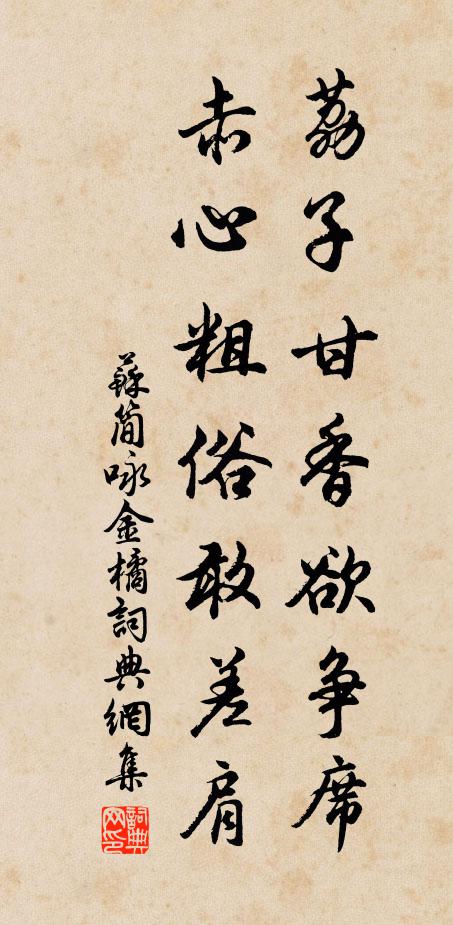 荔子甘香欲争席
赤心粗俗敢差肩
蘇簡咏金橘詞典網集
詞典网印